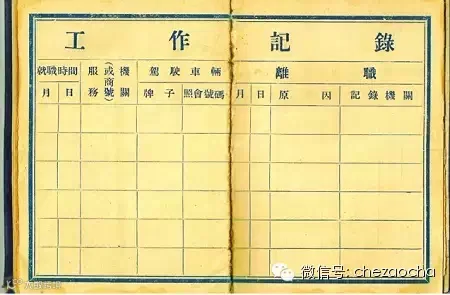 工作記錄
就職時間 服務機關(或商號) 駕駛車輛 離職
月 日 牌子 照會號碼 月 日 原因 記錄機關
微信号: chezaocha